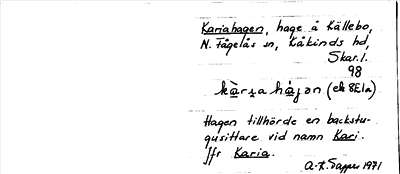 Kariahagen, hage å Källebo,
N. Fågelås sn, Kåkinds hd,
Skar. l.
98
kàrɪa hájən (ek 8E1a)
Hagen tillhörde en backstu-
gusittare vid namn Kari.
Jfr Karia.
A.-R. Sapper 1971